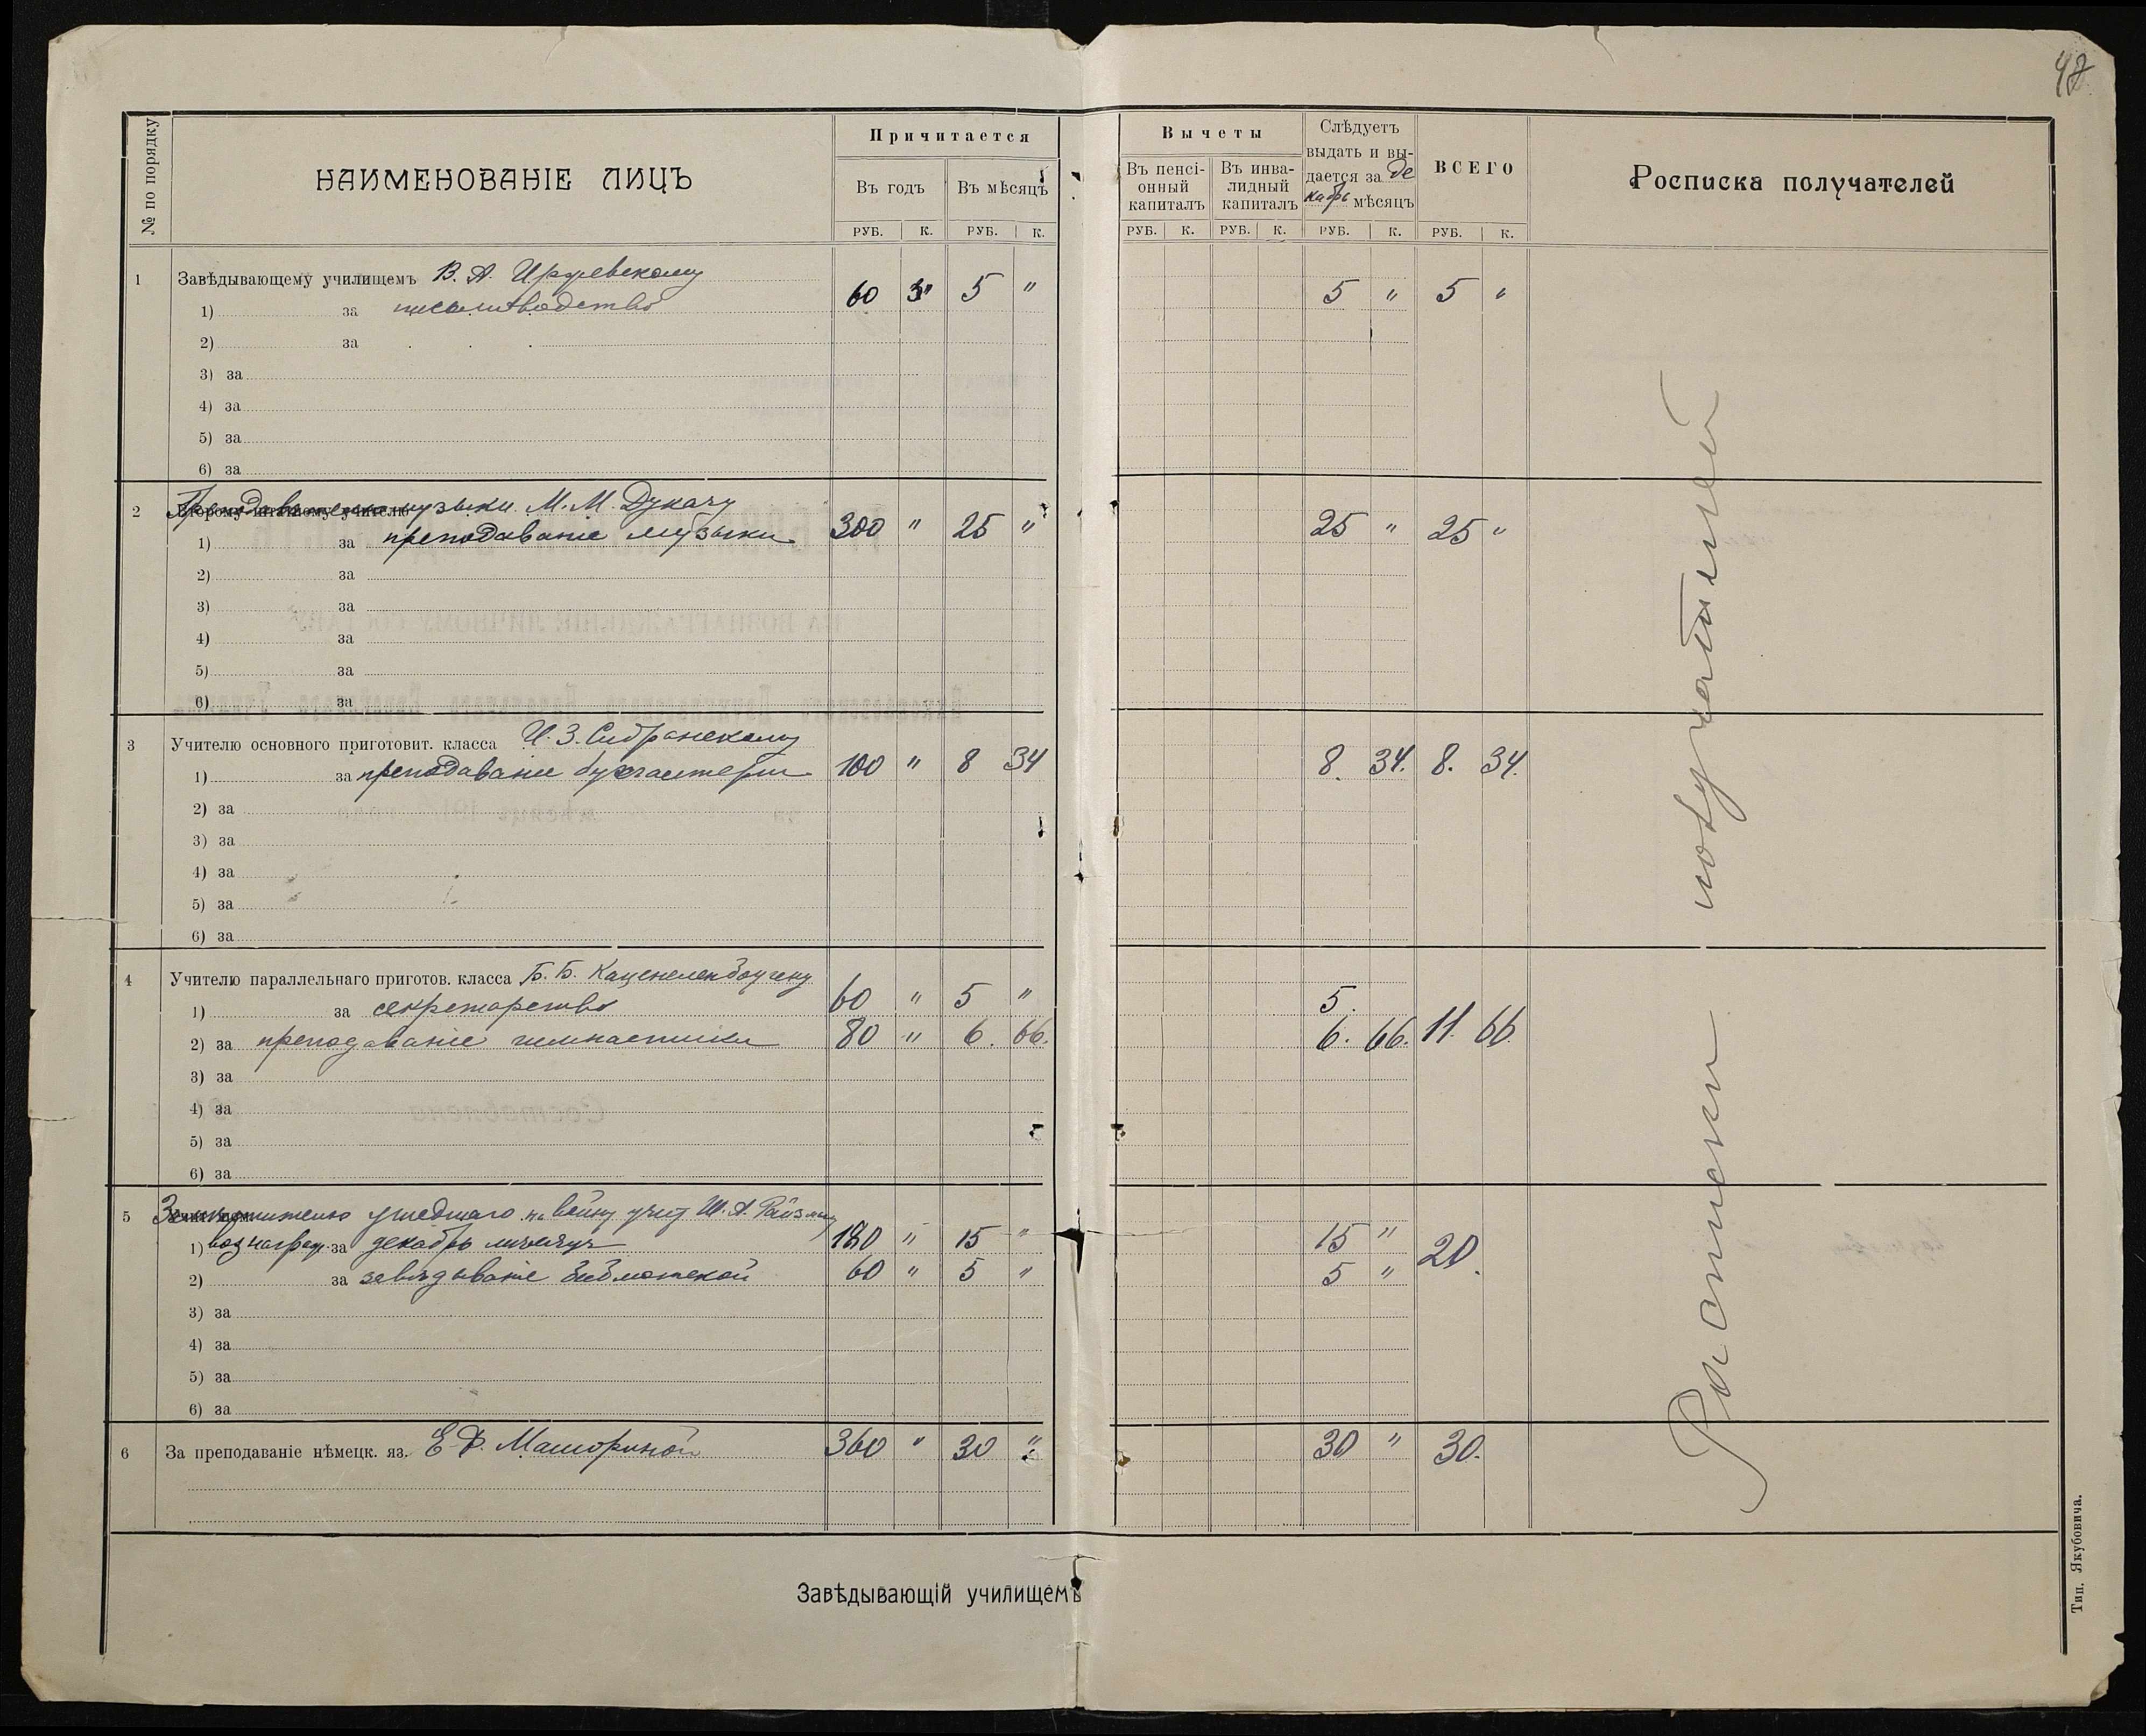 48
№ по порядку
НАИМЕНОВАНІЕ ЛИЦЪ
Причитается
Въ годъ
Въ мѣсяцъ
РУБ. К. РУБ. К.
Вычеты
Въ пенсі-
онный
капиталъ
Въ инва-
лидный
капиталъ
Слѣдуетъ
выдать и вы-
дается за де
кабрь мѣсяцъ
ВСЕГО
Росписка получателей
РУБ. К. РУБ. К. РУБ. К. РУБ. К.
1 Завѣдывающему училищемъ В. А.
1) за письмоводство 60 " 5 " 5 " 5 "
2) за
3) за
4) за
5) за
6) за
2 Преподавателю музыки М. М. Дукачу
Второму штатному учителю
1) за преподаваніе музыки 300 " 25 " 25 " 25 "
2) за
3) за
4) за
5) за
6) за
3 Учителю основного приготовит. класса И. З.
1) за преподаваніе бухгалтеріи 100 " 8 34 8. 34. 8. 34.
2) за
3) за
4) за
5) за
6) за
4 Учителю параллельнаго приготов. класса Б. Б. Каценеленбогену
1) за секретарство 60 " 5 " 5.
2) за преподаваніе гимнастики 80 " 6. 66. 6. 66. 11. 66.
3) за
4) за
5) за
6) за
5 Заместителю ушедшаго на войну учит Ш. А.
1) вознагражд. за декабрь мѣсяцъ 180 " 15 " 15 " 20.
2) за завѣдываніе библіотекой 60 " 5 " 5 "
3) за
4) за
5) за
6) за
6 За преподаваніе нѣмецк. яз. Е. Ф. 360 " 30 " 30 " 30.
Росписки получателей
Завѣдывающій училищемъ
Тип. Якубовича.